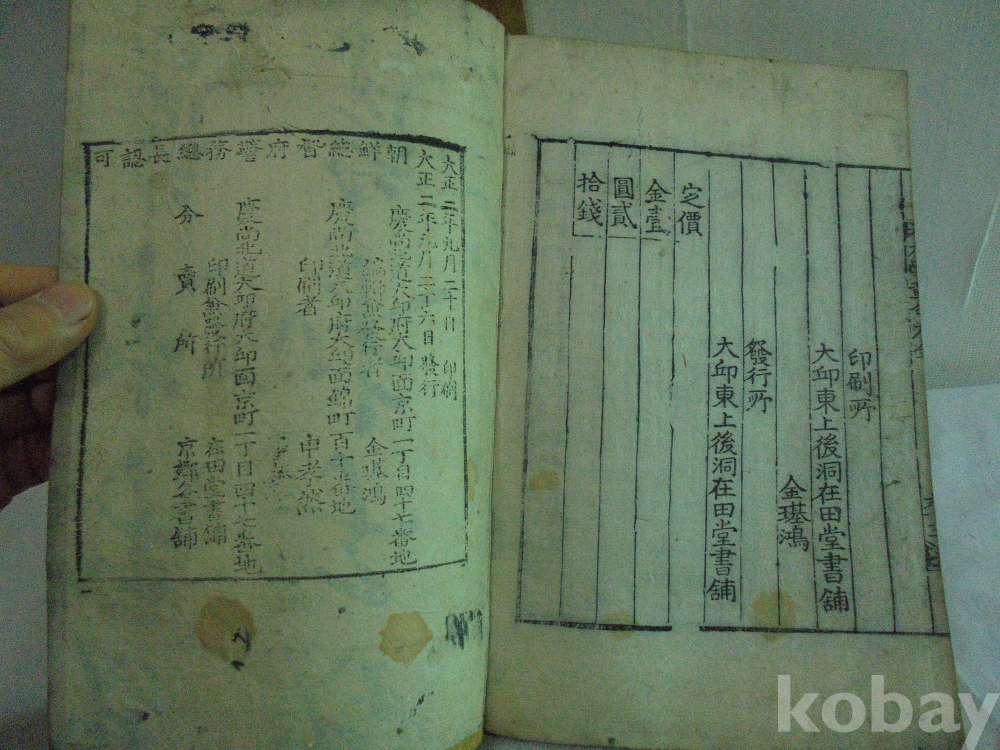 印刷所
大邱東上後洞在田堂書舖
金璂鴻
發行所
大邱東上後洞在田堂書舖
定價
金壹
圓貳
拾錢
大正二年九月二十日 印刷
大正二年九月二十六日 發行
朝鮮總督府警務總長認可
慶尚北道大邱府大邱面京町一丁目四十七番地
編輯兼發行者 金璂鴻
慶尚北道大邱府大邱面
印刷者
慶尚北道大邱府大邱面京町一丁目四十七番地
印刷兼發行所 在田堂書舖
分賣所 京鄉各書舖
kobay